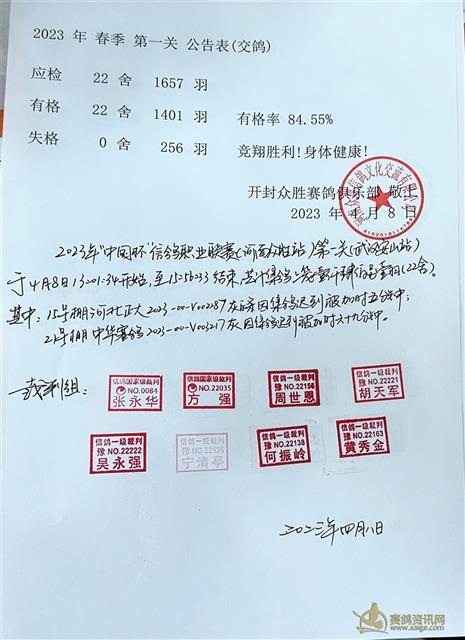 2023 年 春季 第一关 公告表(交鸽)
应检 22 舍 1657 羽
有格 22 舍 1401 羽 有格率 84.55%
失格 0 舍 256 羽 竞翔胜利!身体健康!
开封众胜赛鸽俱乐部 敬上
2023 年 4 月 8 日
2023年"中国杯"信鸽职业联赛(河南众胜站)第一关(武汉安山站)
于4月8日13:01:34开始,至15:56:33结束,共计集鸽
其中:15号棚河北正大2023-00-V00287灰 因集鸽迟到被加时五分钟;
21号棚中华赛鸽2023-00-V03217灰因集鸽迟到被加时六十九分钟。
裁判组:
信鸽国家级裁判 NO.0084 张永华
信鸽国家级裁判 NO.22035 方强
信鸽一级裁判 豫NO.22156 周世恩
信鸽一级裁判 豫NO.22221 胡天军
信鸽一级裁判 豫NO.22222 吴永强
信鸽一级裁判 豫NO.22126 宁清亭
信鸽一级裁判 豫NO.22138 何振岭
信鸽一级裁判 豫NO.22163 黄秀金
二〇二三年四月八日
赛鸽资讯网
www.saige.com